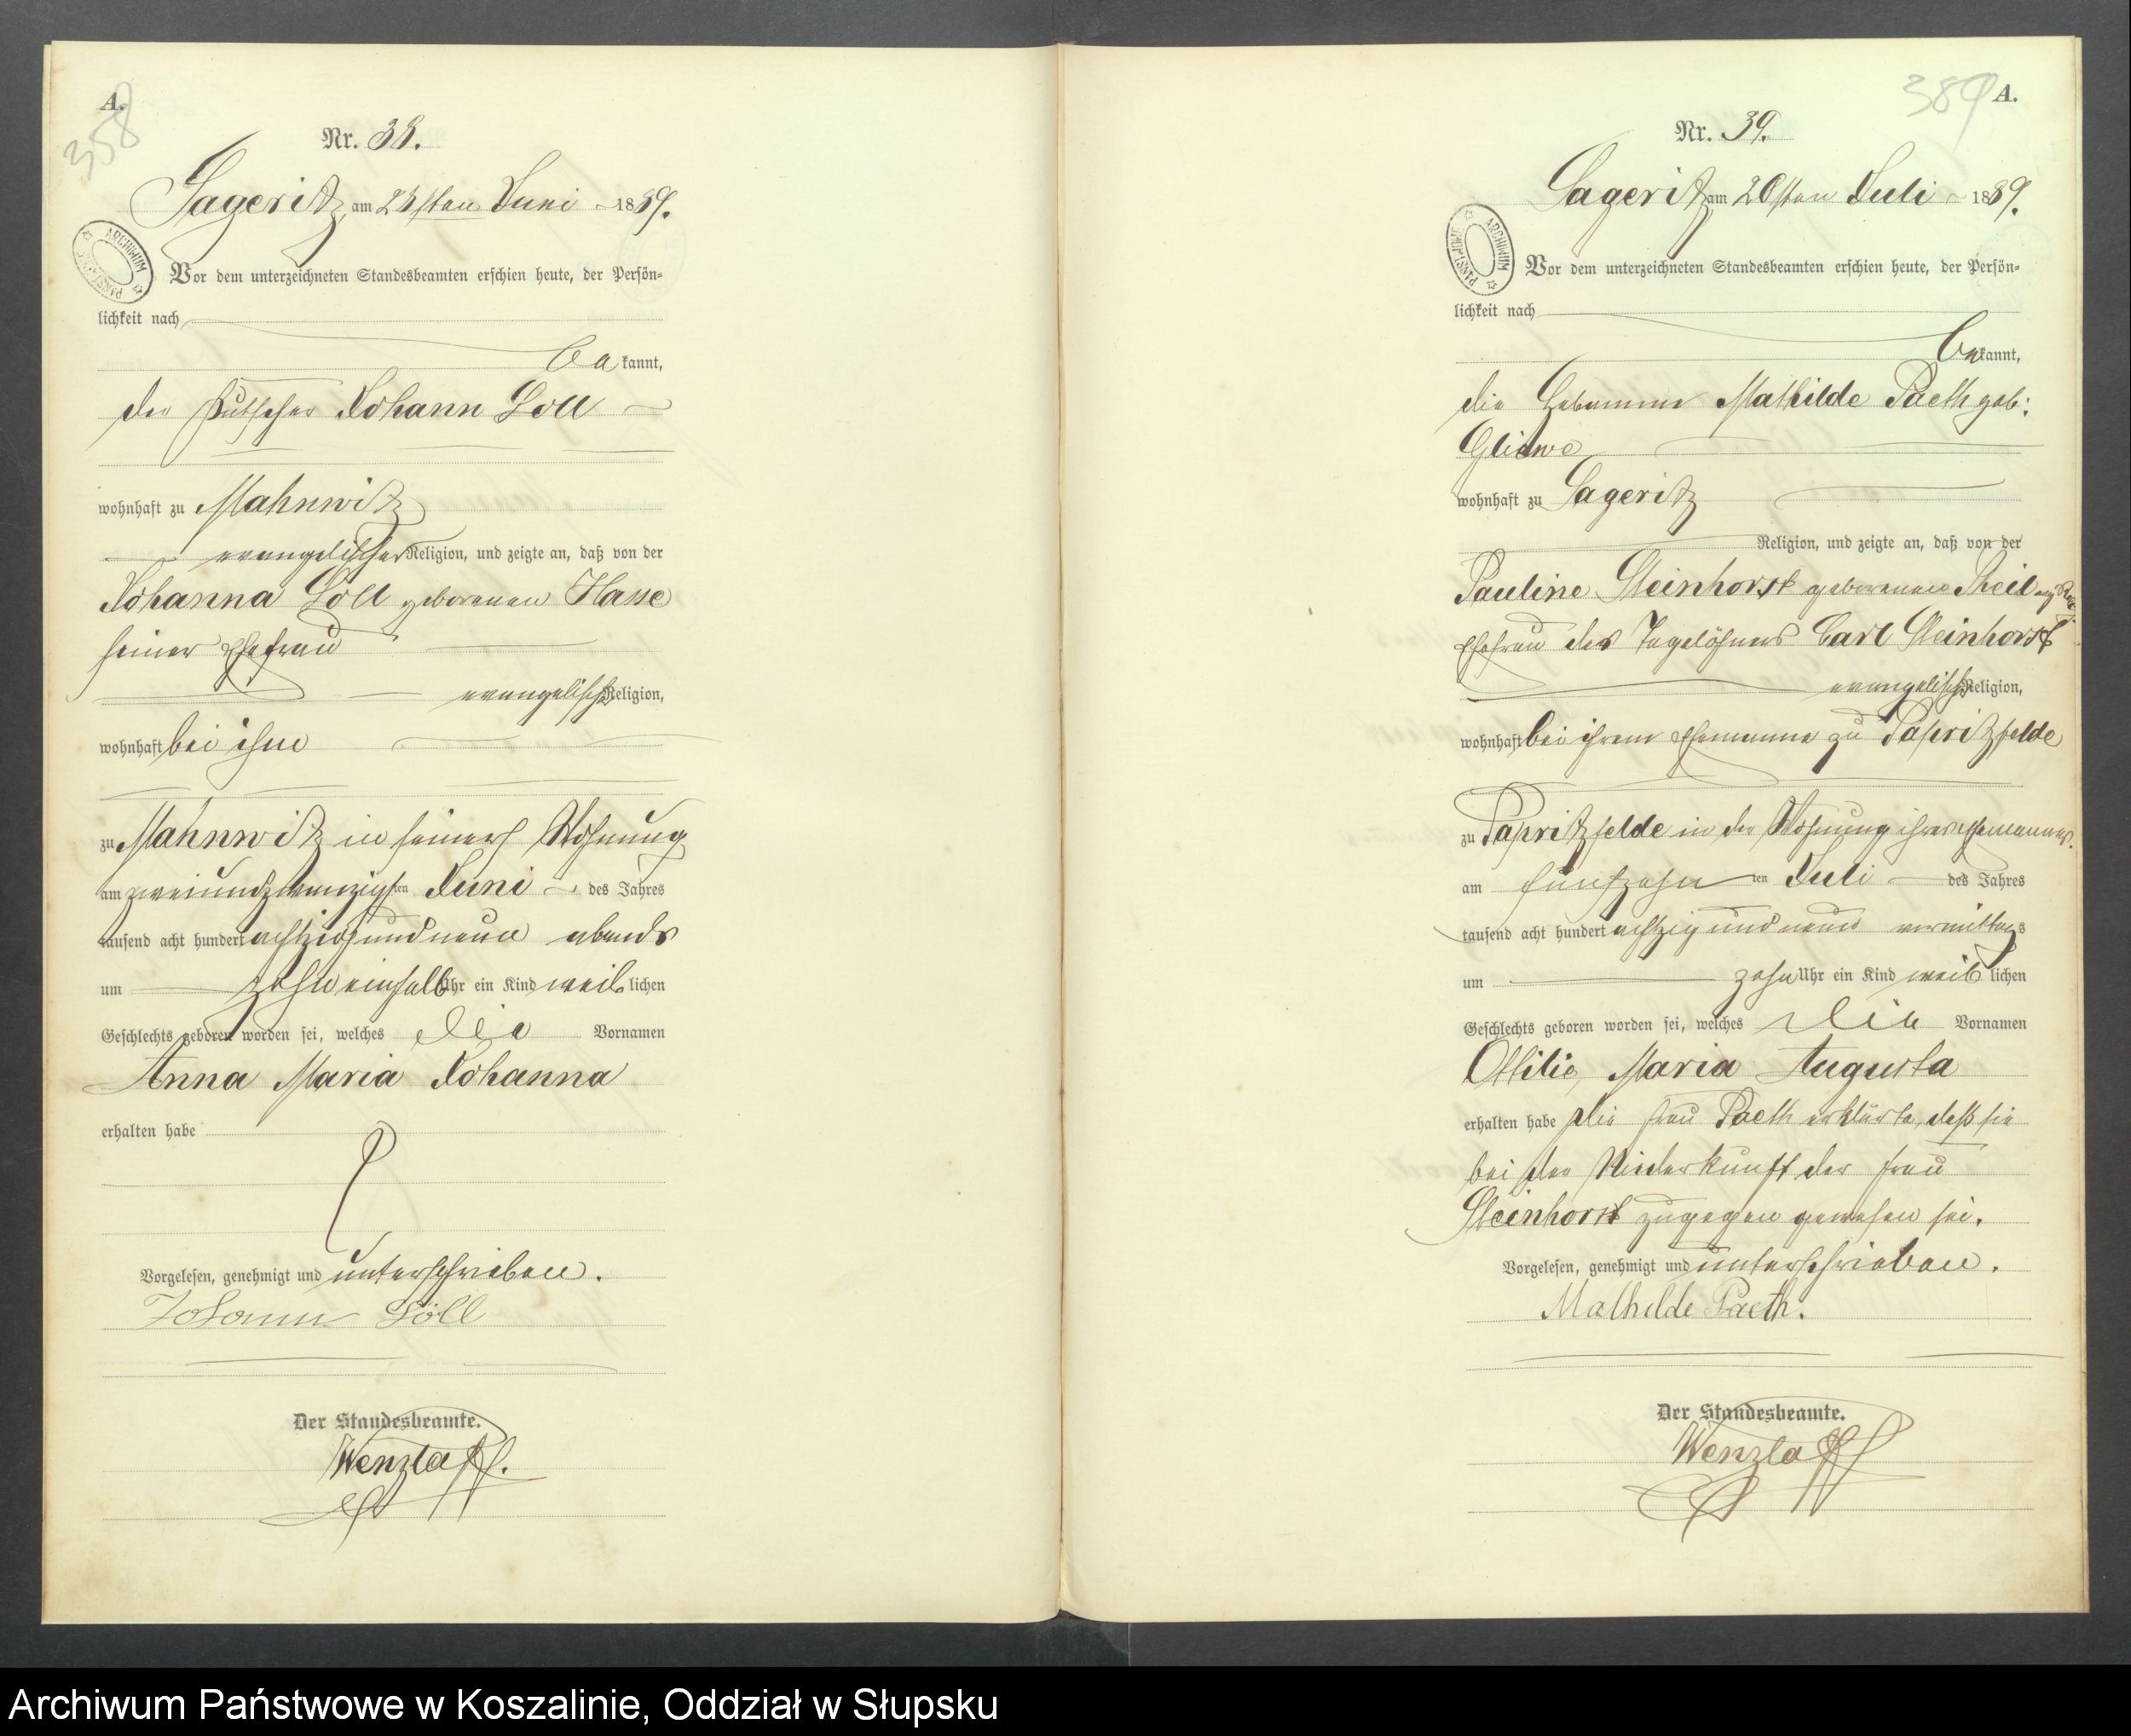 A.
358
Nr. 38.
Sageritz, am 23sten Juni 1889.
ARCHIWUM PAŃSTWOWE
Vor dem unterzeichneten Standesbeamten erschien heute, der Persön=
lichkeit nach
be kannt,
der Kutscher Johann Söll
wohnhaft zu Mahnwitz
evangelischer Religion, und zeigte an, daß von der
Johanna Söll geborenen Hasse
seiner Ehefrau
evangelisch Religion,
wohnhaft bei ihm
zu Mahnwitz in seiner Wohnung
am zweiundzwanzigsten Juni des Jahres
tausend acht hundert achtzig und neun abends
um zehn einhalb Uhr ein Kind weiblichen
Geschlechts geboren worden sei, welches die Vornamen
Anna Maria Johanna
erhalten habe
Vorgelesen, genehmigt und unterschrieben.
Johann Söll
Der Standesbeamte.
Wenzlaff.
389
A.
Nr. 39.
Sageritz am 20sten Juli 1889.
ARCHIWUM PAŃSTWOWE
Vor dem unterzeichneten Standesbeamten erschien heute, der Persön=
lichkeit nach
bekannt,
die Hebamme Mathilde Paeth geb:
Gliewe
wohnhaft zu Sageritz
Religion, und zeigte an, daß von der
Pauline Steinhorst geborenen Theil
Ehefrau des Tagelöhners Carl Steinhorst
evangelisch Religion,
wohnhaft bei ihrem Ehemanne zu Papritzfelde
zu Papritzfelde in der Wohnung ihres Ehemannes.
am fünfzehnten Juli des Jahres
tausend acht hundert achtzig und neun vormittags
um zehn Uhr ein Kind weiblichen
Geschlechts geboren worden sei, welches die Vornamen
Ottilie Maria Augusta
erhalten habe Die Frau Paeth erklärte, daß sie
bei der Niederkunft der Frau
Steinhorst zugegen gewesen sei.
Vorgelesen, genehmigt und unterschrieben.
Mathilde Paeth.
Der Standesbeamte.
Wenzlaff
Archiwum Państwowe w Koszalinie, Oddział w Słupsku